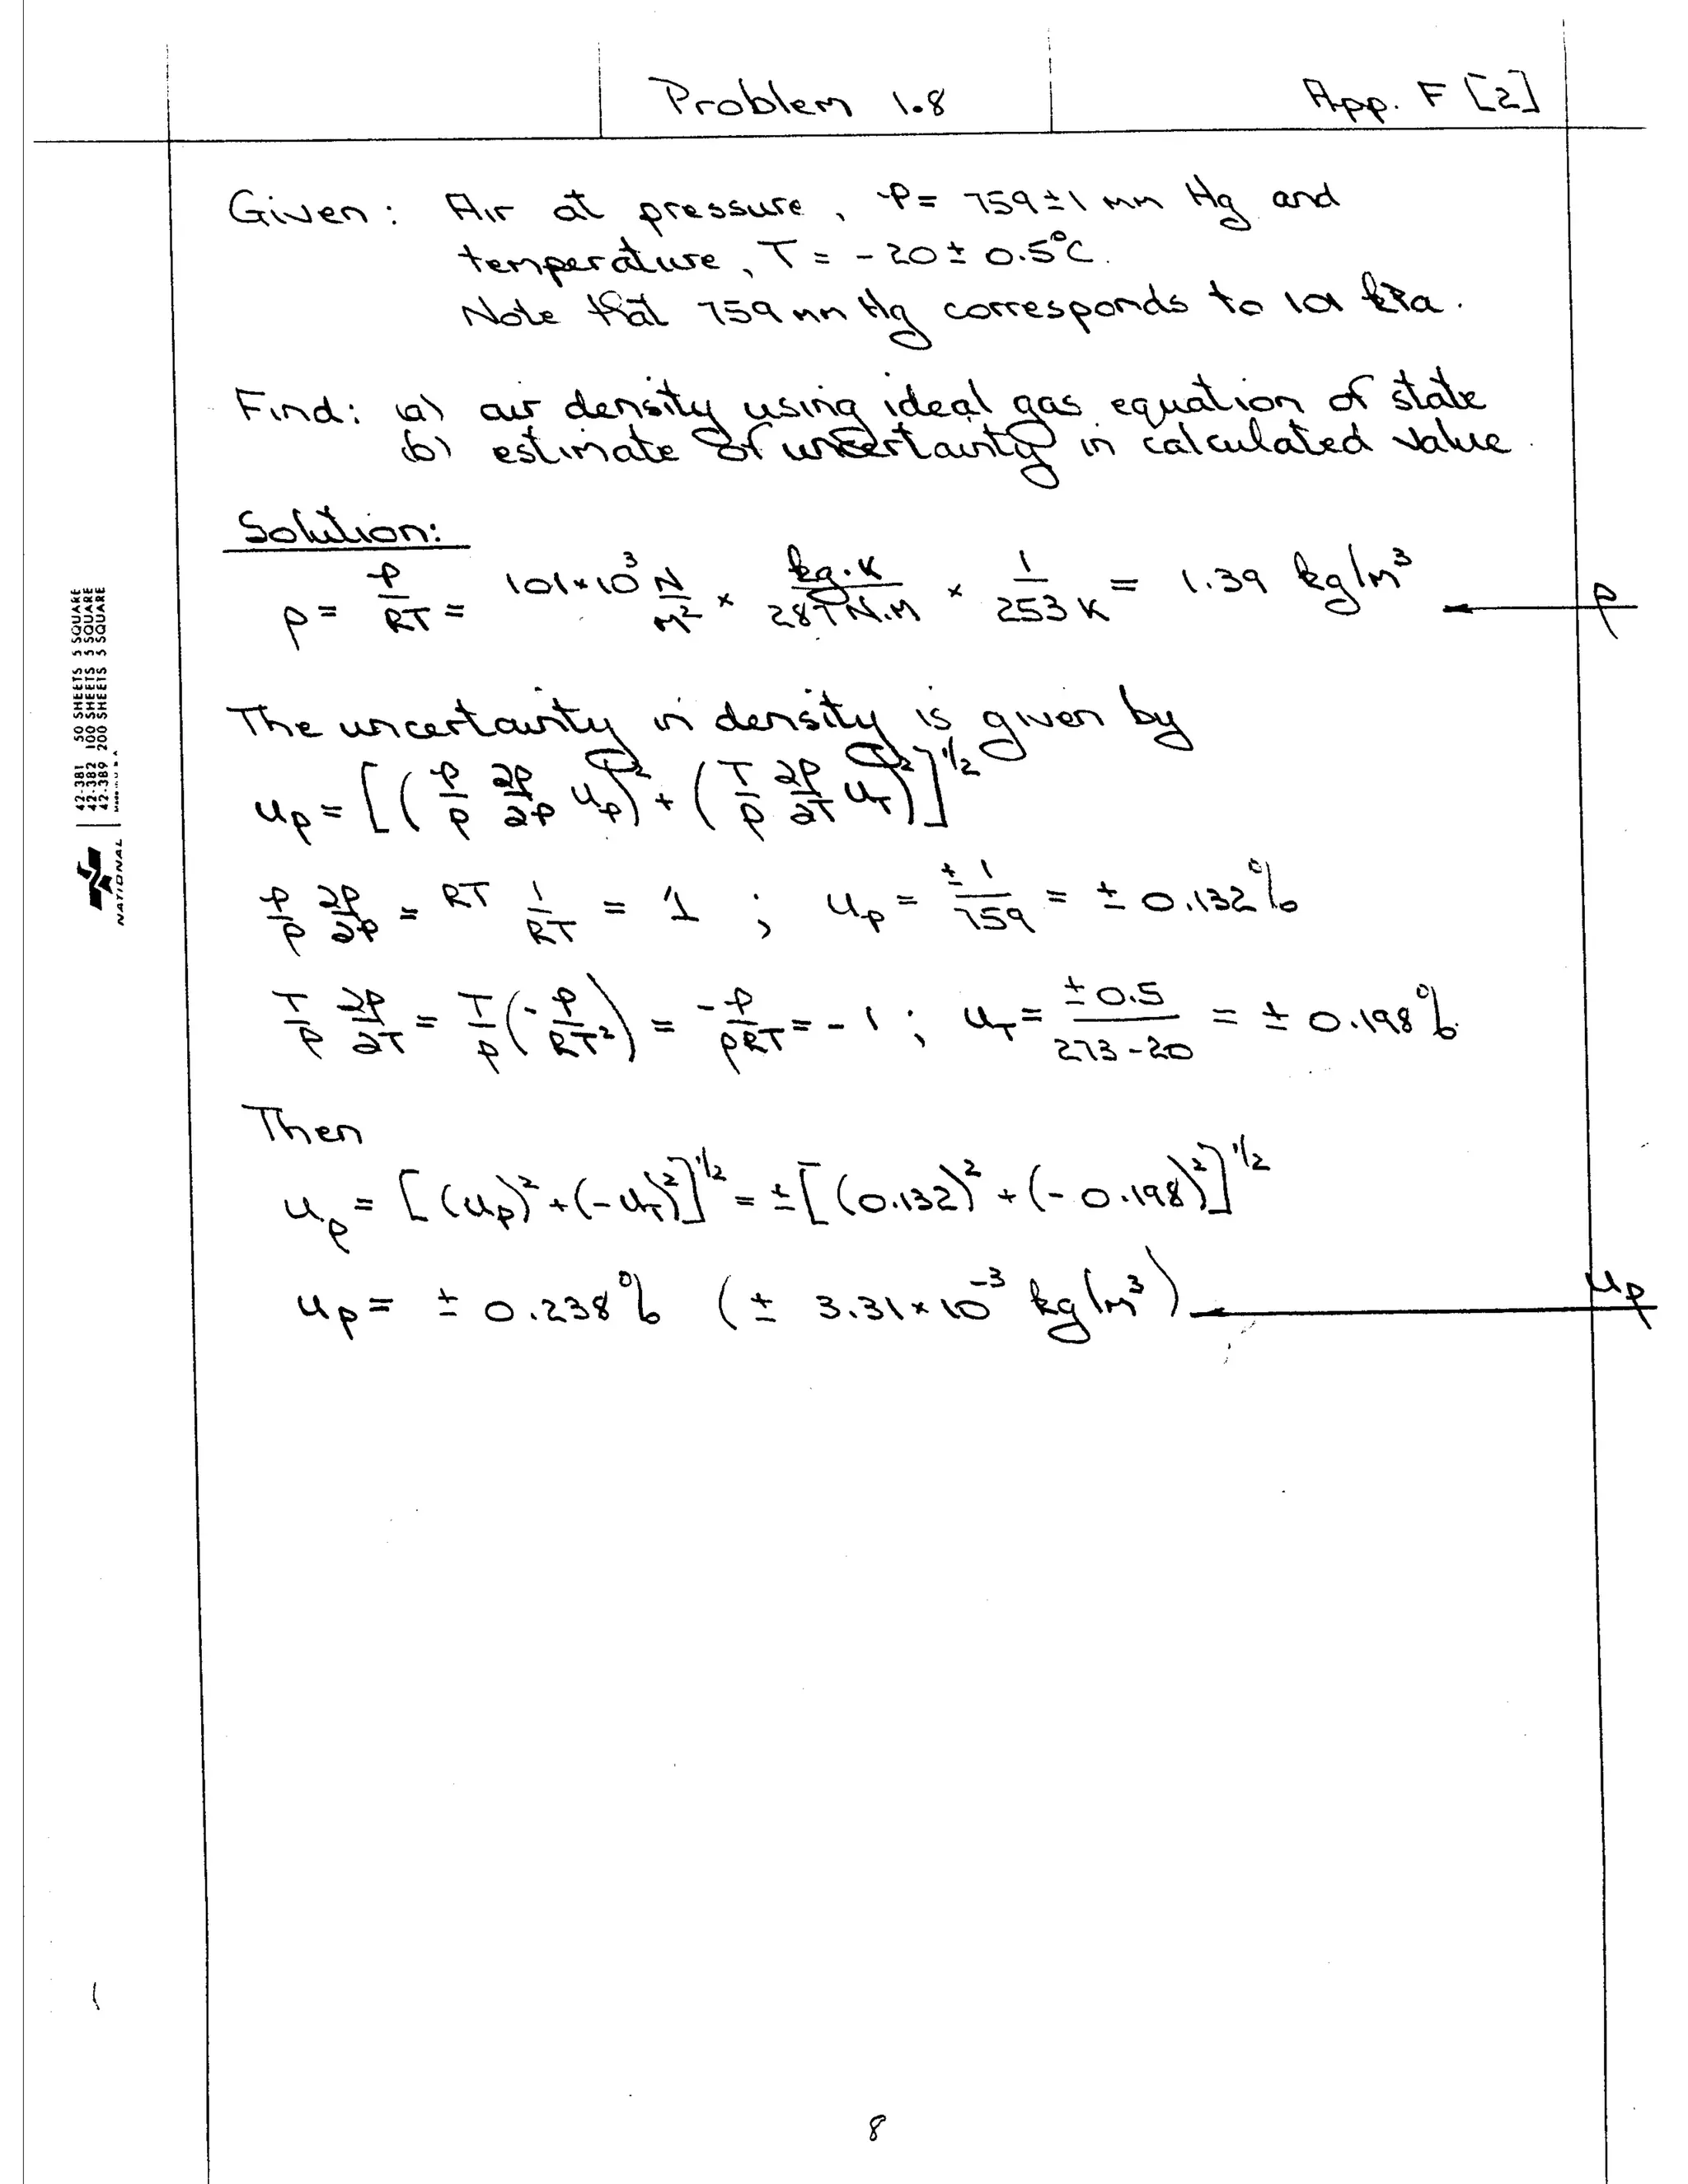 Problem 1.8
App. F [2]
Given: Air at pressure, p = 759 ± 1 mm Hg and
temperature, T = -20 ± 0.5°C.
Note that 759 mm Hg corresponds to 101 kPa.
Find: (a) air density using ideal gas equation of state
(b) estimate of uncertainty in calculated value.
Solution:
ρ = p/RT = 101×10³ N/m² × kg·K/287 N·m × 1/253 K = 1.39 kg/m³ ρ
The uncertainty in density is given by
uρ = [(p/ρ ∂ρ/∂p up)² + (T/ρ ∂ρ/∂T uT)²]^1/2
p/ρ ∂ρ/∂p = RT 1/RT = 1 ; up = ±1/759 = ± 0.132%
T/ρ ∂ρ/∂T = T/ρ (-p/RT²) = -p/ρRT = -1 ; uT = ±0.5/273-20 = ± 0.198%
Then
uρ = [(up)² + (-uT)²]^1/2 = ±[(0.132)² + (-0.198)²]^1/2
uρ = ± 0.238% (± 3.31×10⁻³ kg/m³) uρ
42-381 50 SHEETS 5 SQUARE
42-382 100 SHEETS 5 SQUARE
42-389 200 SHEETS 5 SQUARE
NATIONAL
8